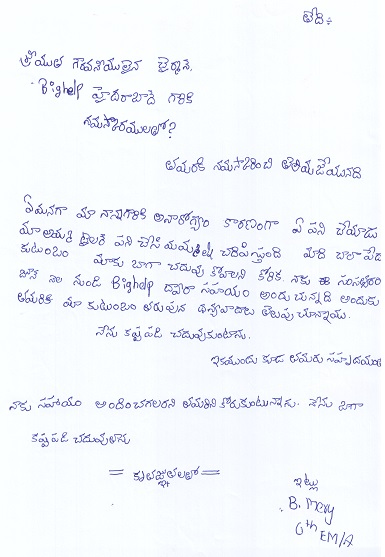 తేది:
శ్రీయుత గౌరవనీయులైన చైర్మన్,
Bighelp హైదరాబాద్ గారికి
నమస్కారములతో?
తమరికి నమస్కరించి తెలియజేయునది
ఏమనగా మా నాన్నగారికి అనారోగ్యం కారణంగా ఏ పని చేయడు
మా అమ్మ టైలర్ పని చేసి మమ్మల్ని చదివిస్తుంది మాది చాలా పేద
కుటుంబం మాకు బాగా చదువు కోవాలని కోరిక. నాకు ఈ సంవత్సరం
జూన్ నెల నుండి Bighelp ద్వారా సహయం అందుచున్నది అందుకు
తమరికి మా కుటుంబం తరుపున ధన్యవాదాలు తెలుపు చున్నాము.
నేను కష్టపడి చదువుకుంటాను.
ఇకముందు కూడ తమరు సహృదయంతో
నాకు సహాయం అందించగలరని తమరిని కోరుకుంటున్నాను. నేను బాగా
కష్టపడి చదువుతాను
= కృతజ్ఞతలతో =
ఇట్లు
B. Mery
6th EM/A